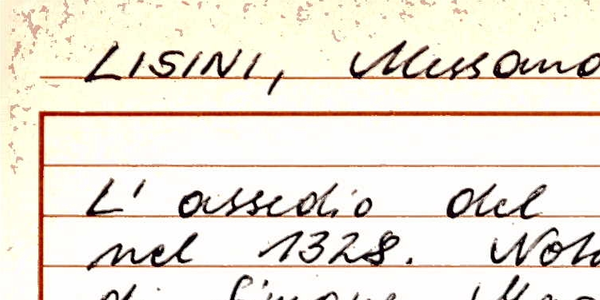 LISINI, Alessand
L' assedio del
nel 1328. Not
di Simone Ma